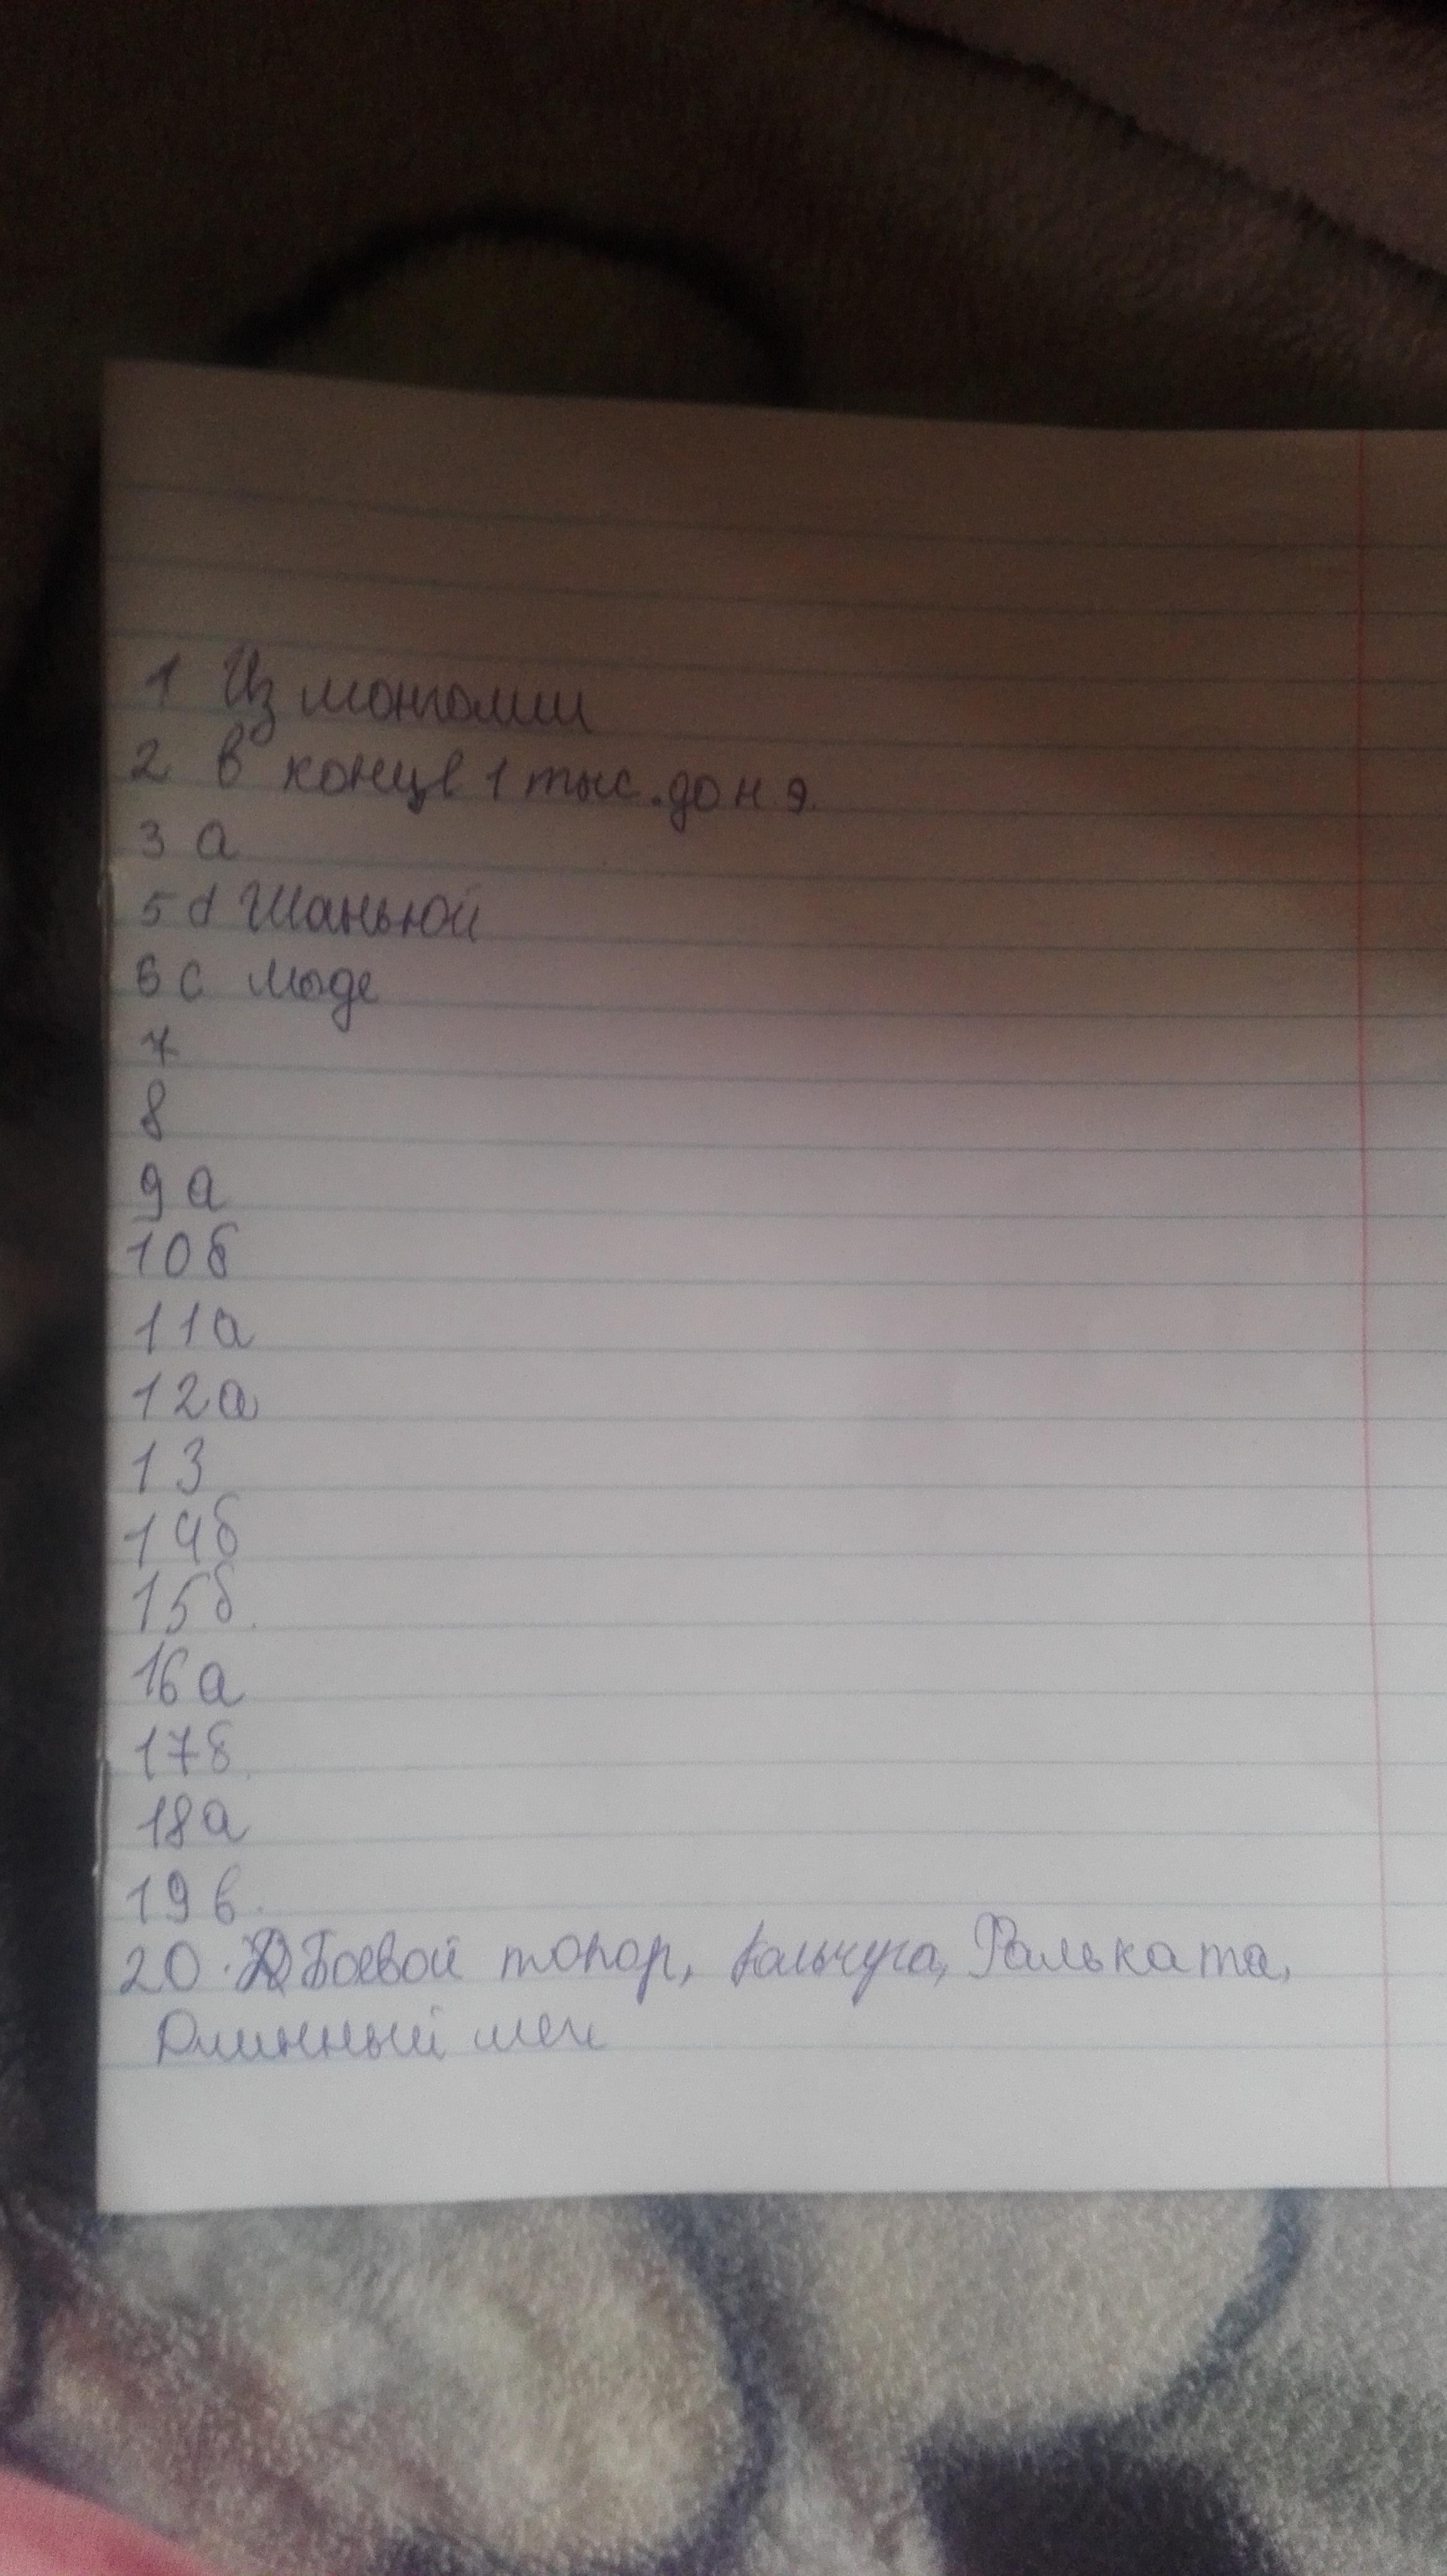 1 Из монголии
2 в конце 1 тыс. до н э
3 а
5 d Шаньюй
6 с Моде
7
8
9 а
10 б
11 а
12 а
13
14 б
15 б.
16 а
17 б.
18 а
19 в.
20. Боевой топор, кольчуга, Фальката,
Длинный меч